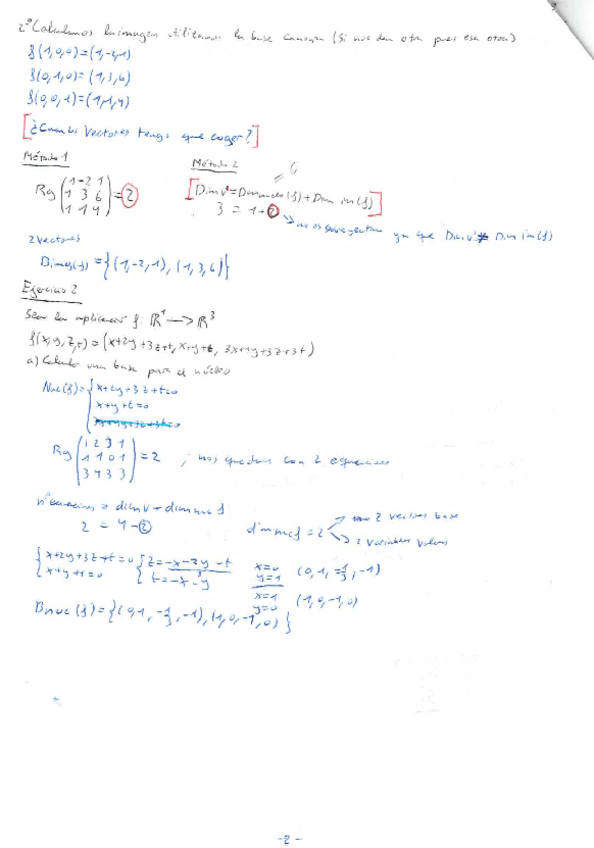 2º Calculamos la imagen utilizando la base canonica (Si nos dan otra pues esa otra)
f(1,0,0)=(1,-2,1)
f(0,1,0)=(1,3,6)
f(0,0,1)=(1,1,4)
[¿Cuantos Vectores tengo que coger?]
Método 1
Rg (1 -2 1
1 3 6
1 1 4) = 2
Método 2
[Dim V = Dim nuc(f) + Dim im(f)]
3 = 1 + 2
ya que Dim V ≠ Dim im(f)
2 vectores
Bimg(f) = {(1,-2,1), (1,3,6)}
Ejercicio 2
Sea la aplicacion f: R⁴ → R³
f(x,y,z,t) = (x+2y+3z+t, x+y+t, 3x+4y+3z+3t)
a) Calcula una base para el núcleo
Nuc(f) = { x+2y+3z+t=0
x+y+t=0
Rg (1 2 3 1
1 1 0 1
3 4 3 3) = 2 ; nos quedan con 2 ecuaciones
nº ecuaciones = dim V - dim nuc f
2 = 4 - 2
dim nuc f = 2
2 vectores base
2 variables
{ x+2y+3z+t=0
x+y+t=0
{ z = -x-2y-t
3
t = -x-y
x=0
y=1
(0,1,-1/3,-1)
x=1
y=0
(1,0,-1,0)
Bnuc(f) = {(0,1,-1/3,-1), (1,0,-1,0)}
-2-